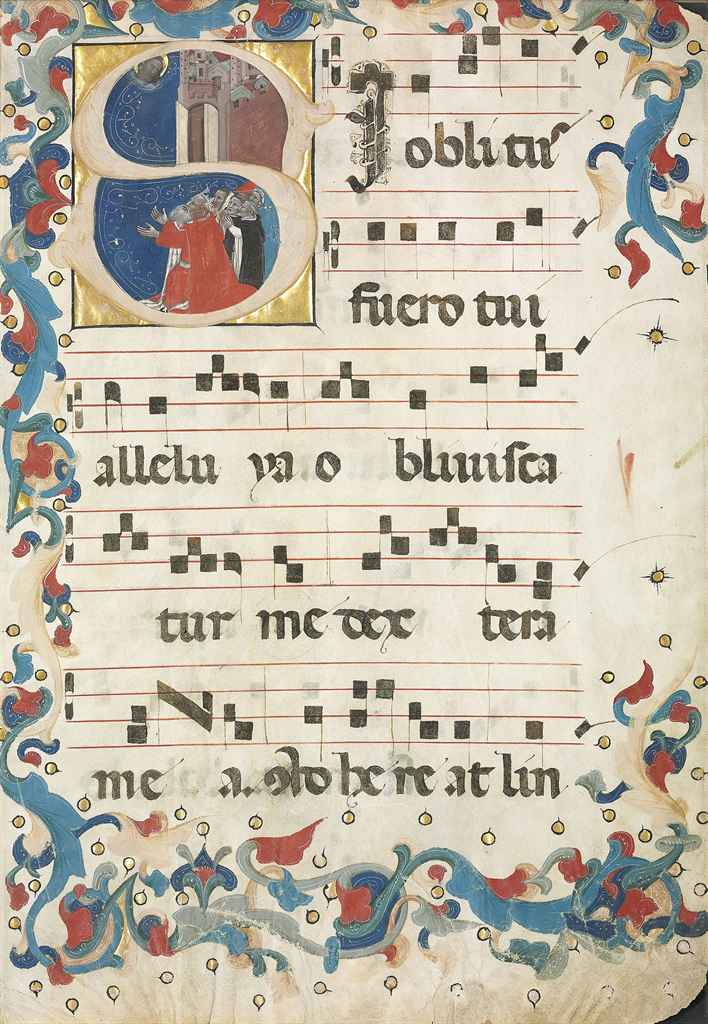 SI oblitus
fuero tui
allelu ya o bliuisca
tur me dex tera
me a. Adhereat lin